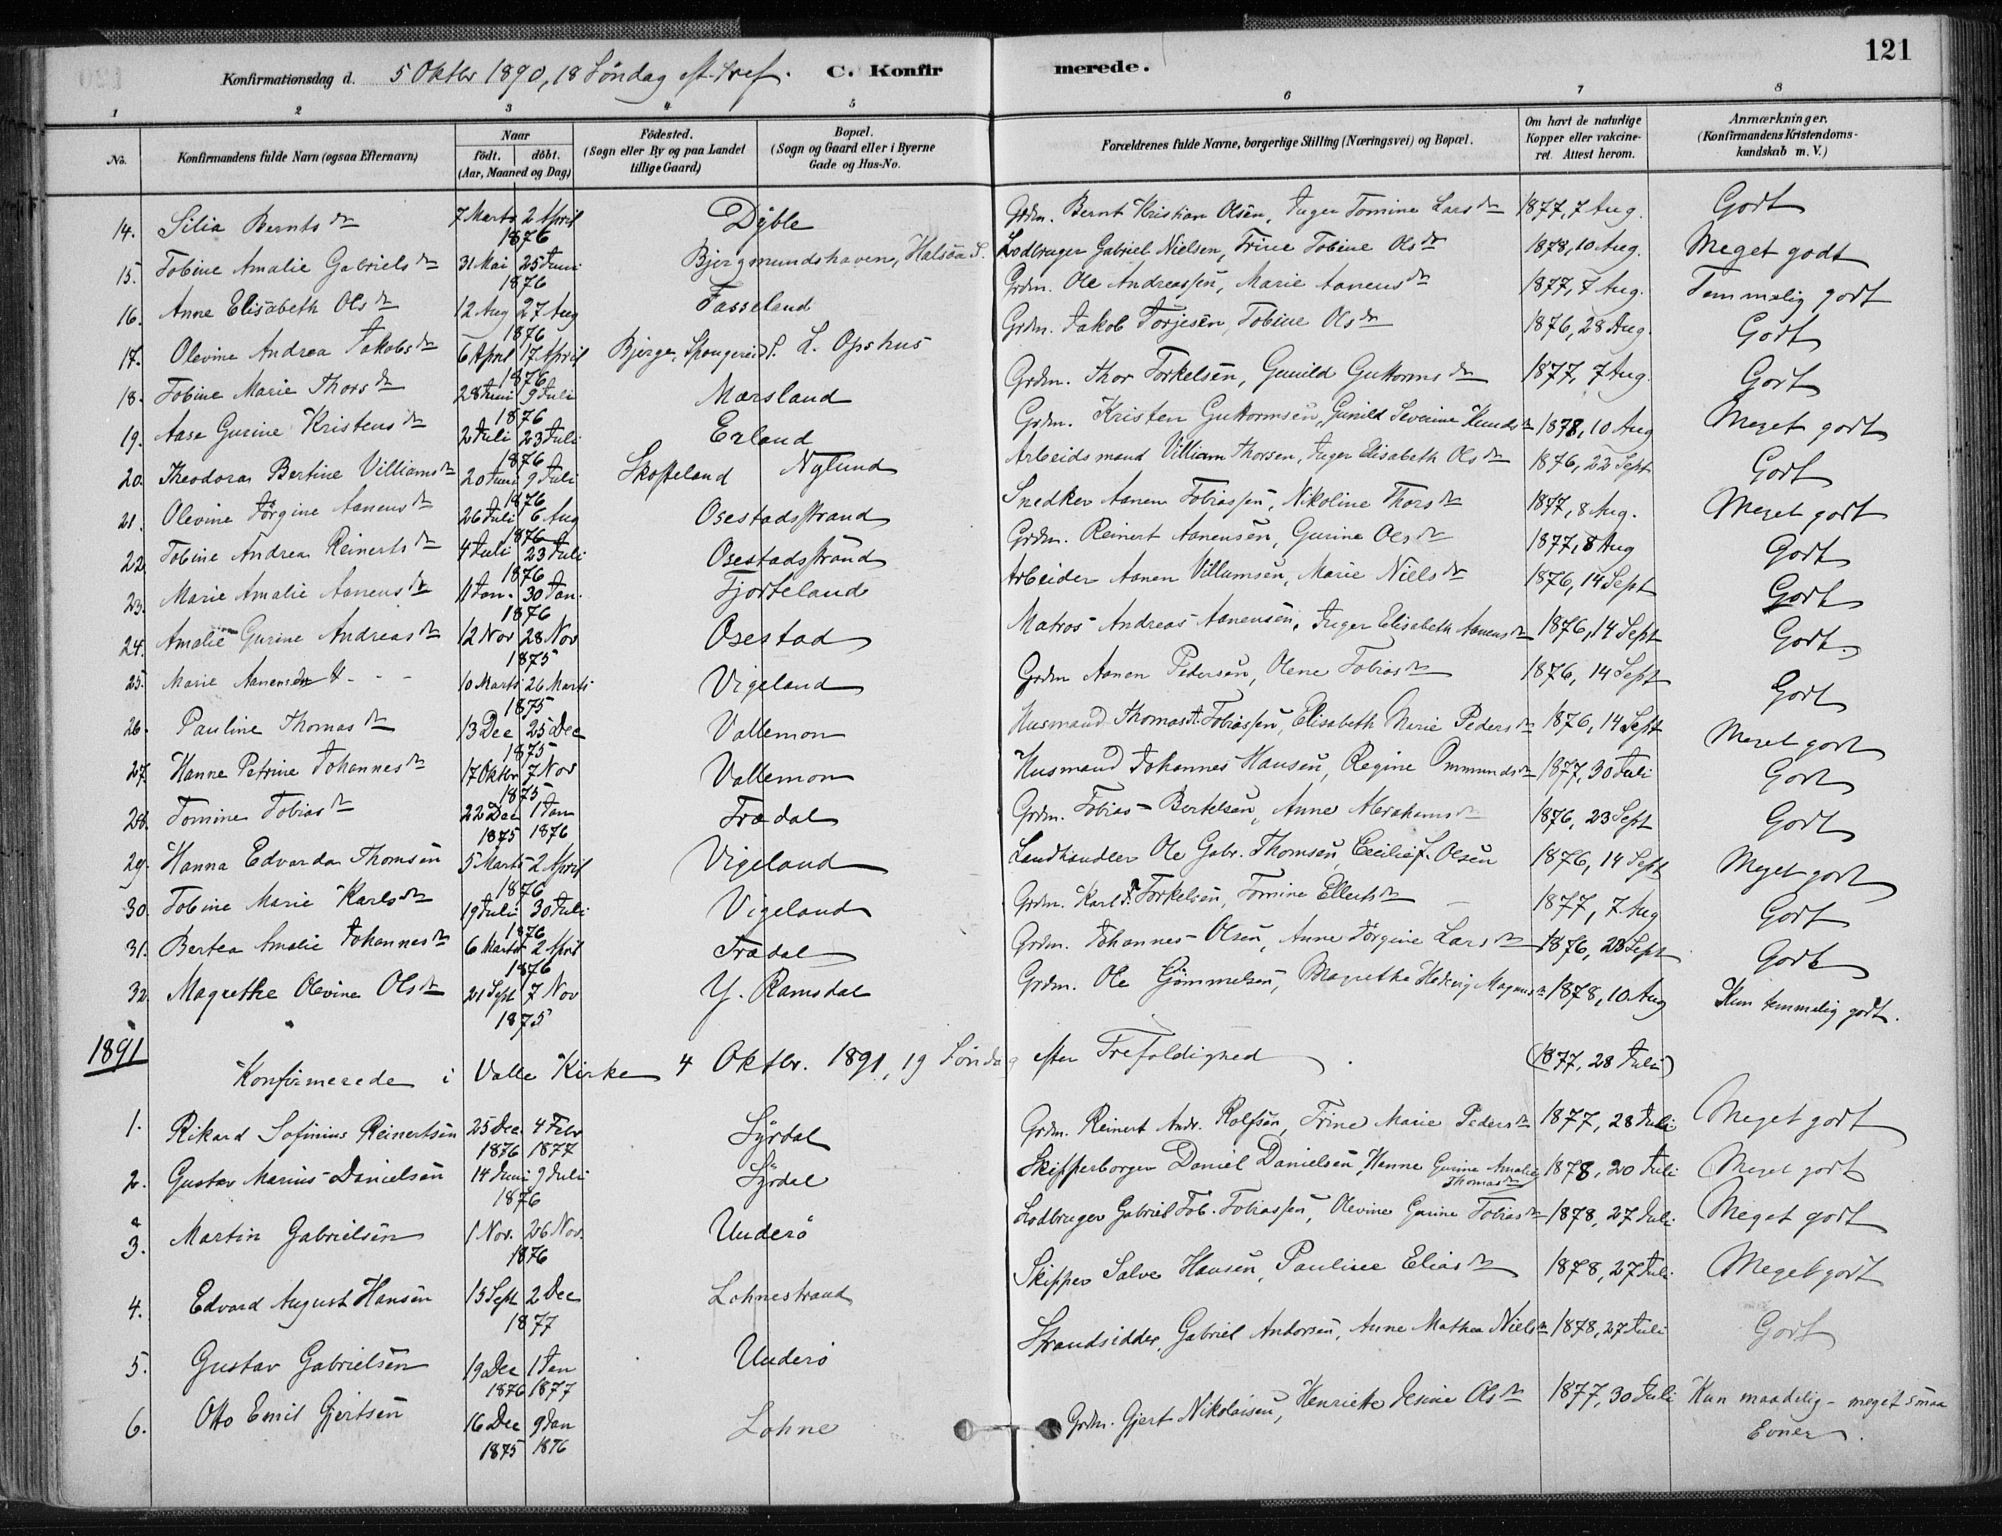 121
Konfirmationsdag d. 5 Oktbr 1890, 18 Søndag eft. Tref. C. Konfirmerede.
1 2 3 4 5 6 7 8
No. Konfirmandens fulde Navn (ogsaa Efternavn) Naar født. døbt. (Aar, Maaned og Dag) Fødested. (Sogn eller By og paa Landet tillige Gaard) Bopæl. (Sogn og Gaard eller i Byerne Gade og Hus-No. Forældrenes fulde Navne, borgerlige Stilling (Næringsvei) og Bopæl. Om havt de naturlige Kopper eller vakcineret. Attest herom. Anmærkninger. (Konfirmandens Kristendomskundskab m. V.)
14. Silia Bernts dtr 7 Marts 2 April 1876 Dyble Grdm. Bernt Kristian Olsen, Inger Tomine Lars dtr 1877, 7 Aug. Godt
15. Tobine Amalie Gabriels dtr 31 Mai 25 Juni 1876 Bjergmundshaven, Halsaa S. Lodbruger Gabriel Nielsen, Trine Tobine Ols dtr 1878, 10 Aug. Meget godt
16. Anne Elisabeth Ols dtr 12 Aug 27 Aug 1876 Fasseland Grdm. Ole Andreassen, Marie Aanens dtr 1877, 7 Aug. Temmelig godt
17. Olevine Andrea Jakobs dtr 6 April 17 April 1876 Bjerge, Spangereid S. L. Opshus Grdm. Jakob Torjesen, Tobine Ols dtr 1876, 28 Aug. Godt
18. Tobine Marie Thors dtr 28 Juni 9 Juli 1876 Mærsland Grdm. Thor Torkelsen, Gunild Guttorms dtr 1877, 7 Aug. Godt
19. Aase Gurine Kristens dtr 2 Juli 23 Juli 1876 Erland Grdm. Kristen Guttormsen, Gunild Severine Knuds dtr 1878, 10 Aug Meget godt
20. Theodora Bertine Villiams dtr 20 Juni 9 Juli 1876 Skofteland Nylund Arbeidsmand Villiam Thorsen, Inger Elisabeth Ols dtr 1876, 22 Sept Godt
21. Olevine Jørgine Aanens dtr 26 Juli 6 Aug 1876 Osestadstrand Snedker Aanen Tobiassen, Nikoline Thors dtr 1877, 8 Aug. Meget godt
22. Tobine Andrea Reinerts dtr 4 Juli 23 Juli 1876 Osestadstrand Grdm. Reinert Aanensen, Gurine Ols dtr 1877, 8 Aug Godt
23. Marie Amalie Aanens dtr 11 Jan. 30 Jan. 1876 Fjorteland Arbeider Aanen Villumsen, Marie Niels dtr 1876, 14 Sept Godt
24. Amalie Gurine Andreas dtr 12 Nov 28 Nov 1875 Osestad Matros Andreas Aanensen, Inger Elisabeth Aanens dtr 1876, 14 Sept Godt.
25. Marie Aanensdtr 10 Marts 26 Marts 1875 Vigeland Grdm Aanen Pedersen, Olene Tobias dtr 1876, 14 Sept Godt
26. Pauline Thomas dtr 13 Dec 25 Dec 1875 Vallemon Husmand Thomas A. Tobiassen, Elisabeth Marie Peders dtr 1876, 14 Sept Meget godt
27. Hanne Petrine Johannes dtr 17 Oktbr 7 Nov 1875 Vallemon Husmand Johannes Hansen, Regine Ommunds dtr 1877, 30 Juli Godt
28. Tomine Tobias dtr 22 Dec 1 Jan 1875 1876 Trædal Grdm. Tobias Bertelsen, Anne Abrahams dtr 1876, 23 Sept Godt
29. Hanna Edvarda Thomsen 5 Marts 2 April 1876 Vigeland Landhandler Ole Gabr. Thomsen, Cecilie f. Olsen 1876, 14 Sept Meget godt
30. Tobine Marie Karls dtr 19 Juli 30 Juli 1876 Vigeland Grdm. Karl T. Torkelsen, Tomine Ellerts dtr 1877, 7 Aug Godt
31. Bertea Amalie Johannes dtr 6 Marts 2 April 1876 Trædal Grdm. Johannes Olsen, Anne Jørgine Lars dtr 1876, 23 Sept Godt
32. Magrethe Olevine Ols dtr 21 Sept 7 Nov 1875 Y. Ramsdal Grdm. Ole Gjømmelsen, Magrethe Hedevig Magnus dtr 1878, 10 Aug Kun temmelig godt.
1891 Konfirmerede i Valle Kirke 4 Oktbr. 1891, 19 Søndag efter Trefoldighed (1877, 28 Juli)
1. Rikard Sofinius Reinertsen 25 Dec. 4 Febr 1876 1877 Syrdal Grdm. Reinert Andr. Rolfsen, Trine Marie Peders dtr 1877, 28 Juli Meget godt
2. Gustav Marius Danielsen 14 Juni 9 Juli 1876 Syrdal Skipperborger Daniel Danielsen, Hanne Gurine Amalie Thomas dtr 1878, 20 Juli Meget godt
3. Martin Gabrielsen 1 Nov. 26 Nov. 1876 Underø Lodbruger Gabriel Tob. Tobiassen, Olevine Gurine Tobias dtr 1878, 27 Juli Meget godt
4. Edvard August Hansen 15 Sept 2 Dec 1877 Lohnestrand Skipper Salve Hansen, Pauline Elias dtr 1878, 27 Juli Meget godt
5. Gustav Gabrielsen 19 Dec 1 Jan 1876 1877 Underø Strandsidder Gabriel Andorsen, Anne Mathea Niels dtr 1878, 27 Juli Godt
6. Otto Emil Gjertsen 16 Dec 9 Jan 1875 1876 Lohne Grdm. Gjert Nikolaisen, Henriette Jesine Ols dtr 1877, 30 Juli Kun maadelig - meget smaa Evner.